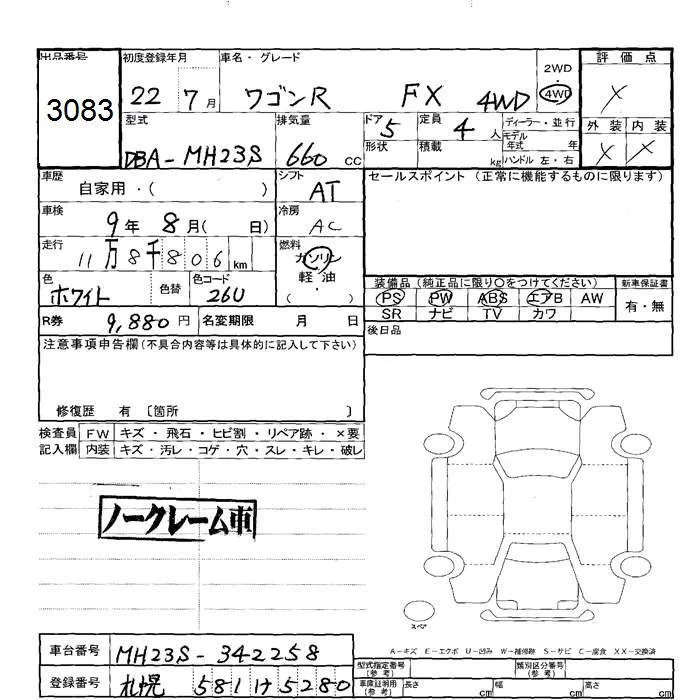 出品番号
3083
初度登録年月
22 7月
車名・グレード
ワゴンR FX 4WD
2WD
・
4WD
評価点
X
外装 内装
X X
型式
DBA-MH23S
排気量
660 CC
ドア 5
形状
定員 4 人
積載 kg
ディーラー・並行
モデル年式 年
ハンドル 左・右
車歴
自家用・( )
シフト
AT
セールスポイント (正常に機能するものに限ります)
車検
9年 8月( 日)
冷房
AC
走行
11万8千806km
燃料
ガソリン
・
軽油
( )
色
ホワイト
色替
色コード
26U
装備品(純正品に限り○をつけてください)
新車保証書
PS PW ABS エアB AW
有・無
SR ナビ TV カワ
R券 9,880円 名変期限 月 日
後日品
注意事項申告欄(不具合内容等は具体的に記入して下さい)
修復歴 有〔箇所 〕
検査員記入欄
FW キズ・飛石・ヒビ割・リペア跡・×要
内装 キズ・汚レ・コゲ・穴・スレ・キレ・破レ
ノークレーム車
スペア
A-キズ E-エクボ U-凹み W-補修跡 S-サビ C-腐食 XX-交換済
車台番号 MH23S-342258
登録番号 札幌 581 け 5280
型式指定番号(参考)
類別区分番号(参考)
車庫証明用(参考) 長さ cm 幅 cm 高さ cm